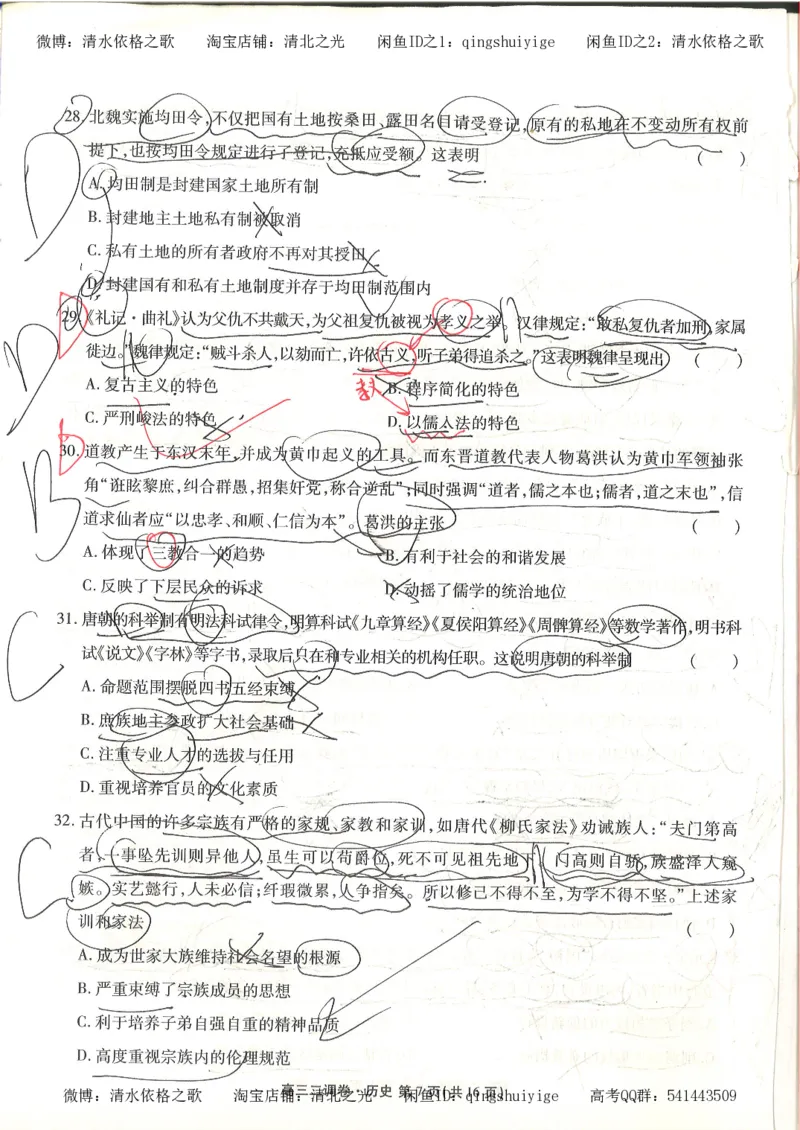 微博：清水依格之歌 淘宝店铺：清北之光 闲鱼ID之1：qingshuiyige 闲鱼ID之2：清水依格之歌
28. 北魏实施均田令,不仅把国有土地按桑田、露田名目请受登记,原有的私地在不变动所有权前
提下,也按均田令规定进行了登记,充抵应受额。这表明 ( )
A. 均田制是封建国家土地所有制
B. 封建地主土地私有制被取消
C. 私有土地的所有者政府不再对其授田
D. 封建国有和私有土地制度并存于均田制范围内
29.《礼记·曲礼》认为父仇不共戴天,为父祖复仇被视为孝义之举。汉律规定:“敢私复仇者加刑,家属
徙边。”魏律规定:“贼斗杀人,以劾而亡,许依古义,听子弟得追杀之。”这表明魏律呈现出 ( )
A. 复古主义的特色 B. 程序简化的特色
C. 严刑峻法的特色 D. 以儒入法的特色
30. 道教产生于东汉末年,并成为黄巾起义的工具。而东晋道教代表人物葛洪认为黄巾军领袖张
角“诳眩黎庶,纠合群愚,招集奸党,称合逆乱”;同时强调“道者,儒之本也;儒者,道之末也”,信
道求仙者应“以忠孝、和顺、仁信为本”。葛洪的主张 ( )
A. 体现了三教合一的趋势 B. 有利于社会的和谐发展
C. 反映了下层民众的诉求 D. 动摇了儒学的统治地位
31. 唐朝的科举制有明法科试律令,明算科试《九章算经》《夏侯阳算经》《周髀算经》等数学著作,明书科
试《说文》《字林》等字书,录取后只在和专业相关的机构任职。这说明唐朝的科举制 ( )
A. 命题范围摆脱四书五经束缚
B. 庶族地主参政扩大社会基础
C. 注重专业人才的选拔与任用
D. 重视培养官员的文化素质
32. 古代中国的许多宗族有严格的家规、家教和家训,如唐代《柳氏家法》劝诫族人:“夫门第高
者,一事坠先训则异他人,虽生可以苟爵位,死不可见祖先地下。门高则自骄,族盛泽人窥
嫉。实艺懿行,人未必信;纤瑕微累,人争指矣。所以修己不得不至,为学不得不坚。”上述家
训和家法 ( )
A. 成为世家大族维持社会名望的根源
B. 严重束缚了宗族成员的思想
C. 利于培养子弟自强自重的精神品质
D. 高度重视宗族内的伦理规范
高三三调卷·历史 第7页(共16页)
微博：清水依格之歌 淘宝店铺：清北之光 闲鱼ID：qingshuiyige 高考QQ群：541443509